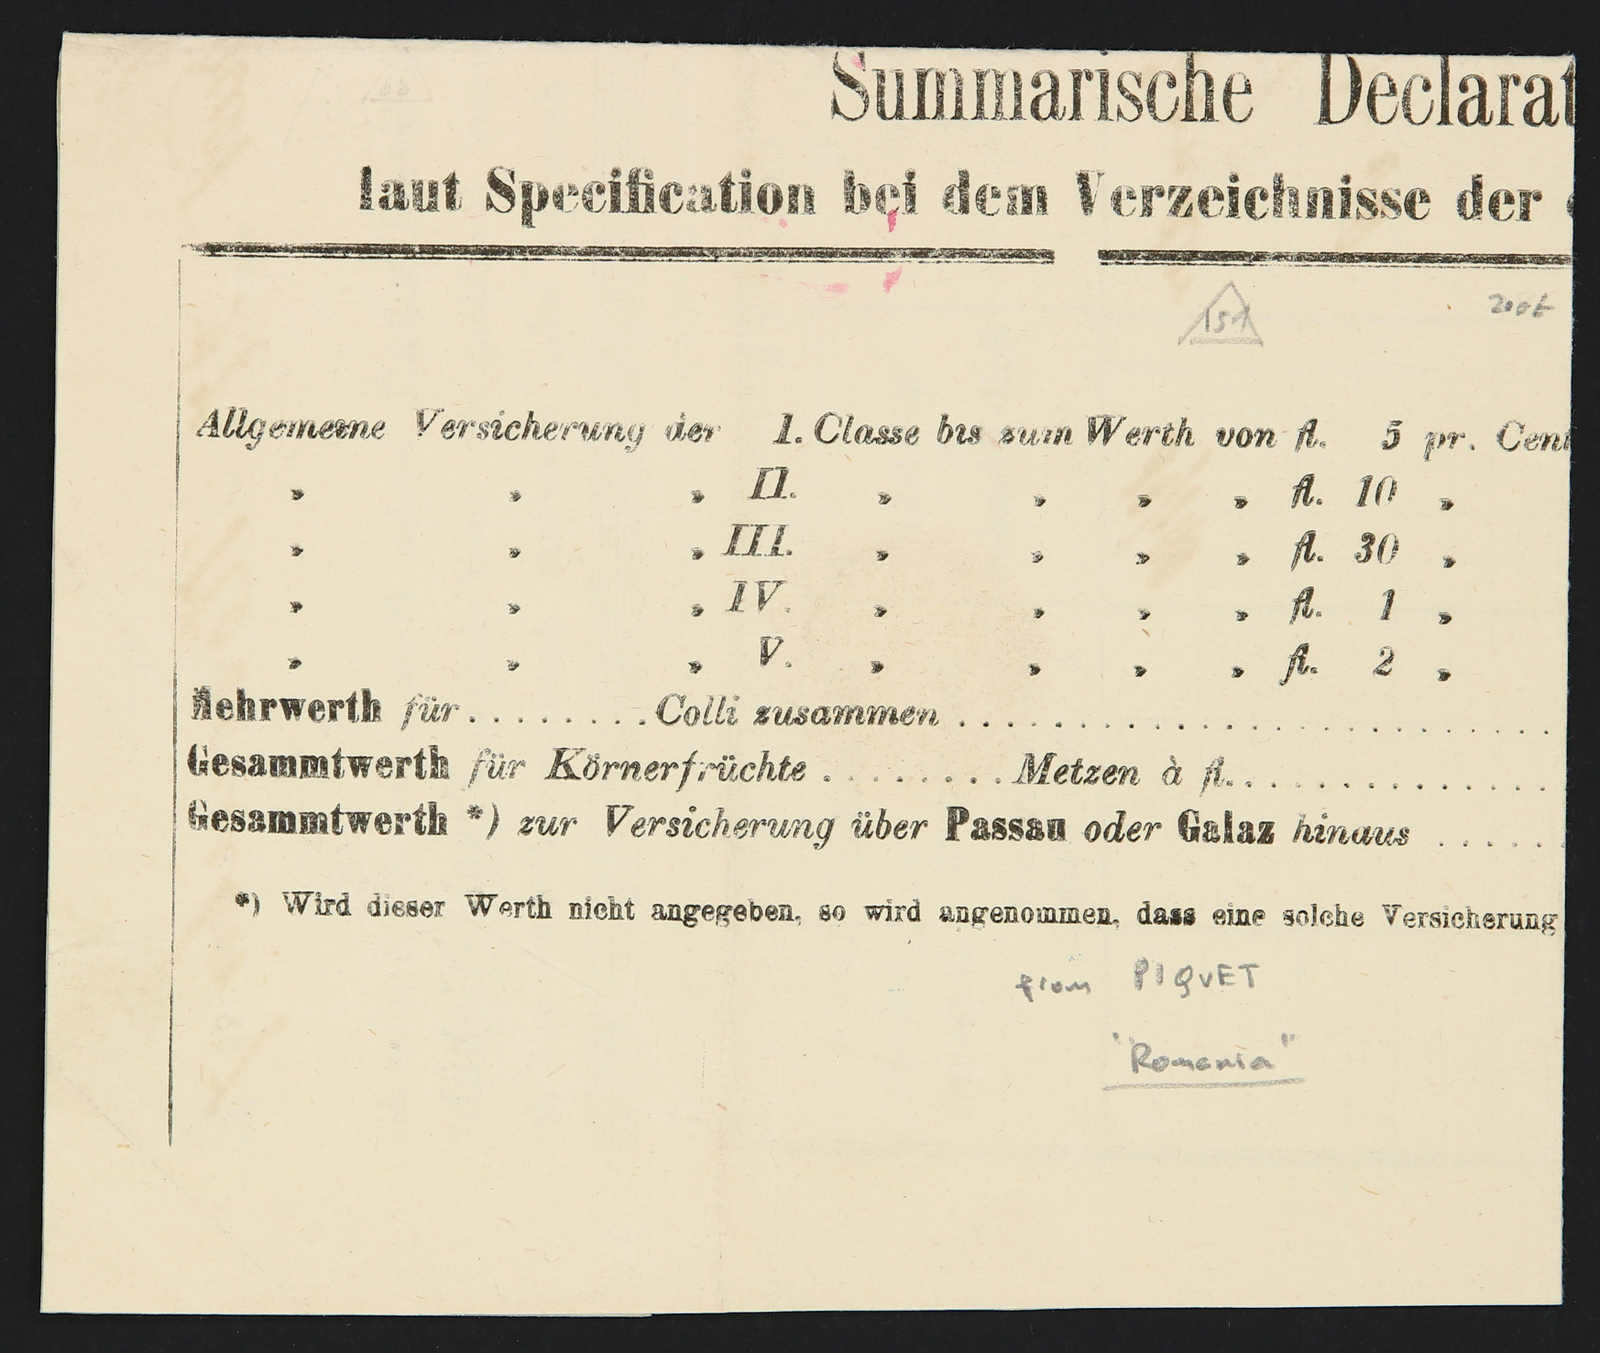 Summarische Declarat
laut Specification bei dem Verzeichnisse der
151
200€
Allgemeine Versicherung der I. Classe bis zum Werth von fl. 5 pr. Cent
" " " II. " " " " fl. 10 "
" " " III. " " " " fl. 30 "
" " " IV. " " " " fl. 1 "
" " " V. " " " " fl. 2 "
Mehrwerth für ........ Colli zusammen ..................
Gesammtwerth für Körnerfrüchte ........ Metzen à fl. ..............
Gesammtwerth *) zur Versicherung über Passau oder Galaz hinaus ......
*) Wird dieser Werth nicht angegeben, so wird angenommen, dass eine solche Versicherung
from PIQUET
"Romania"